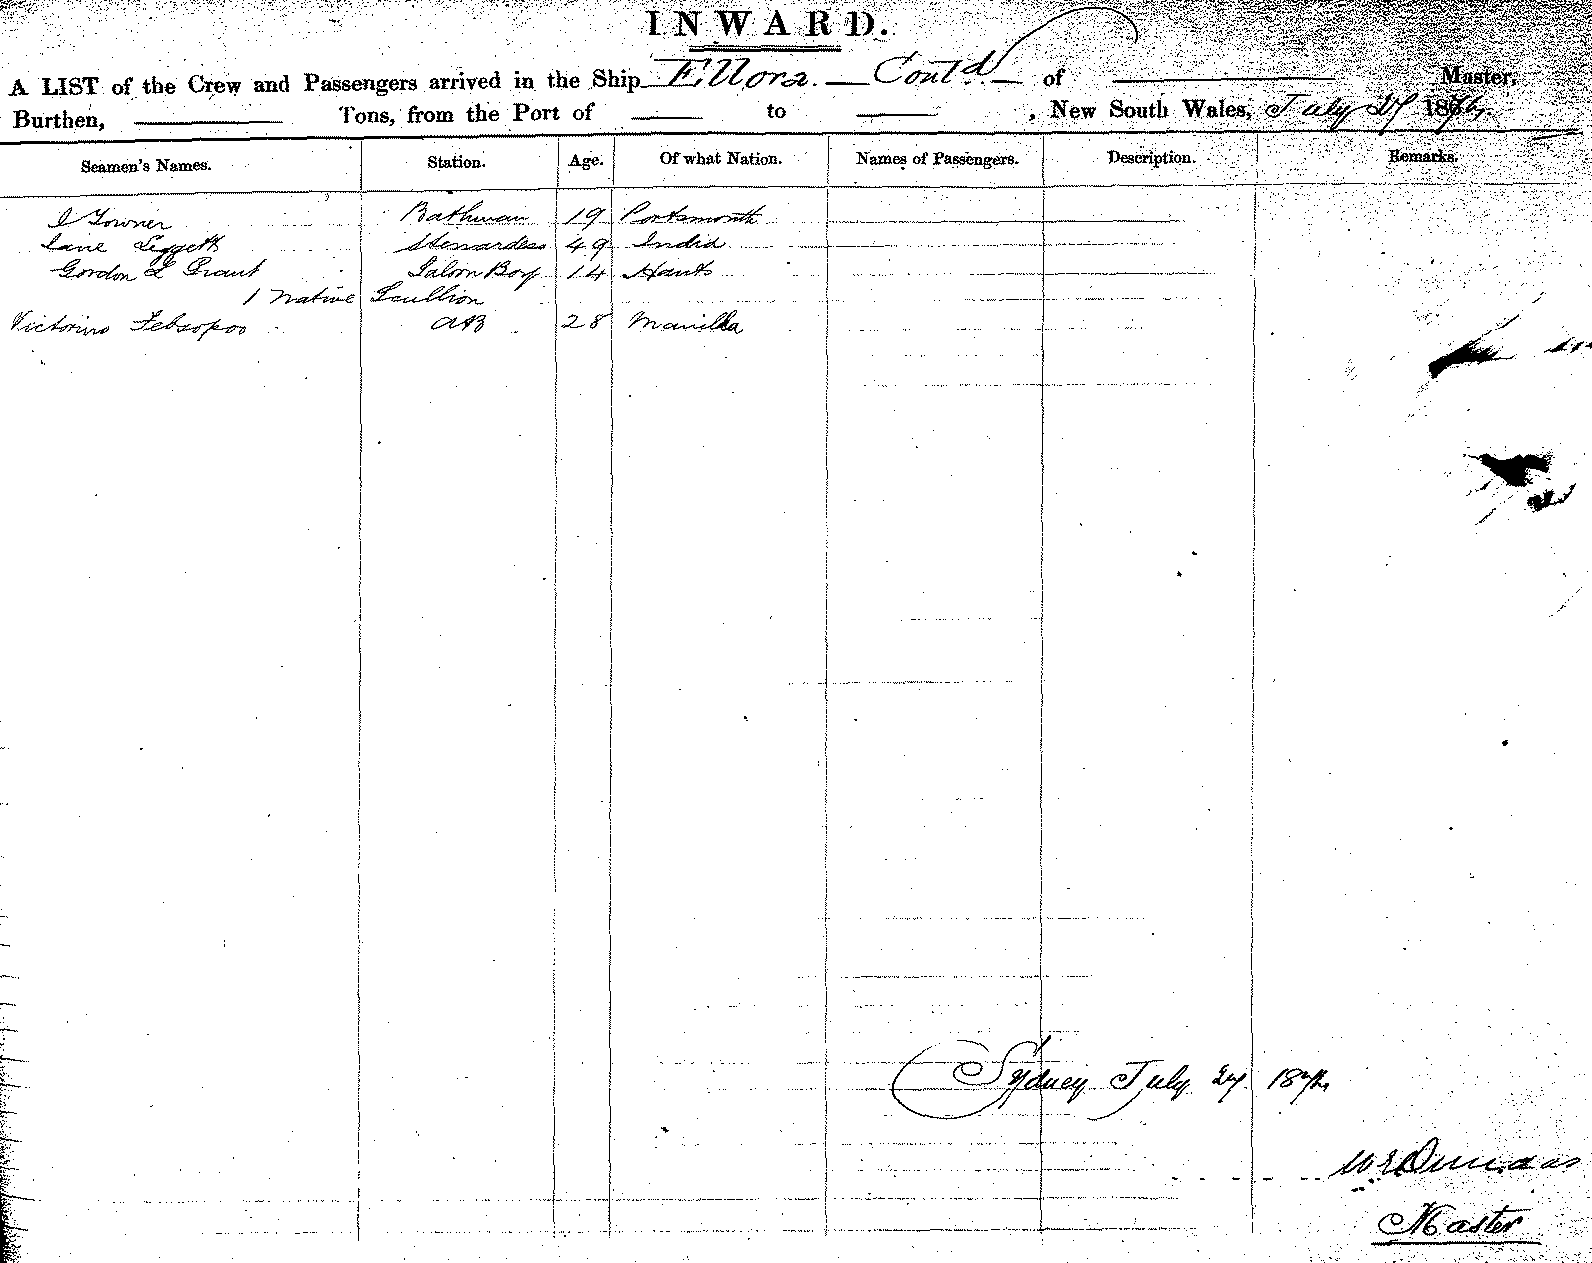 INWARD.
A LIST of the Crew and Passengers arrived in the Ship Ellora. — Contd — of — Master,
Burthen, — Tons, from the Port of — to — , New South Wales, July 27 187
Seamen's Names. Station. Age. Of what Nation. Names of Passengers. Description. Remarks.
I Towner Bathman 19 Portsmouth
Jane Leggett Stewardess 49 India
Gordon L Grant Saloon Boy 14 Hants
1 native Scullion
Victorino AB 28 Manilla
Sydney July 27. 187
W Dundas
Master